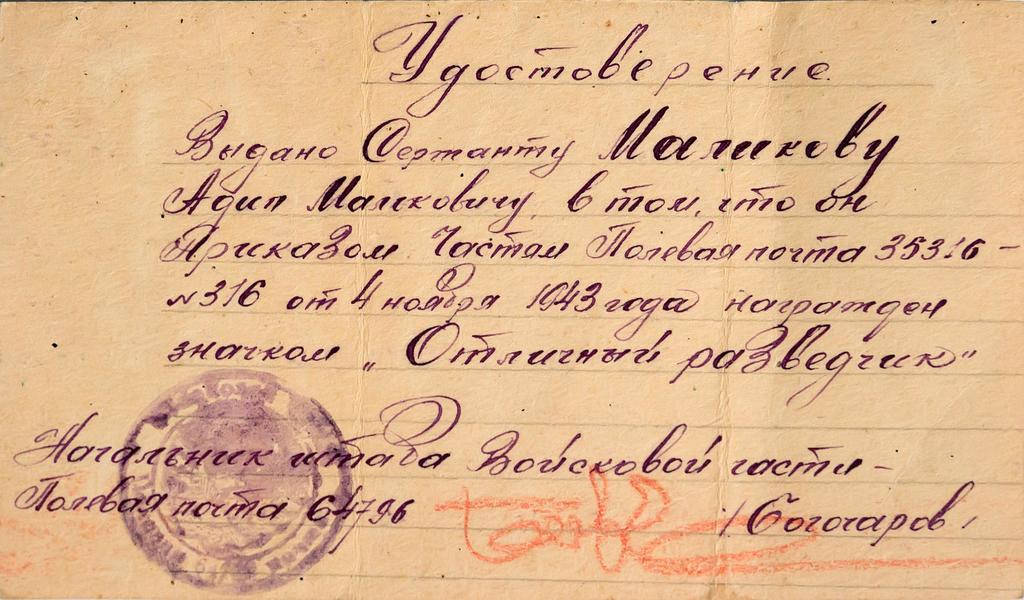 Удостоверение
Выдано Сержанту Маликову
Адип Маликовичу, в том, что он
Приказом Частям Полевая почта 35316 –
№316 от 4 ноября 1943 года награжден
значком „Отличный разведчик"
Начальник штаба Войсковой части –
Полевая почта 64796
/Согочаров/